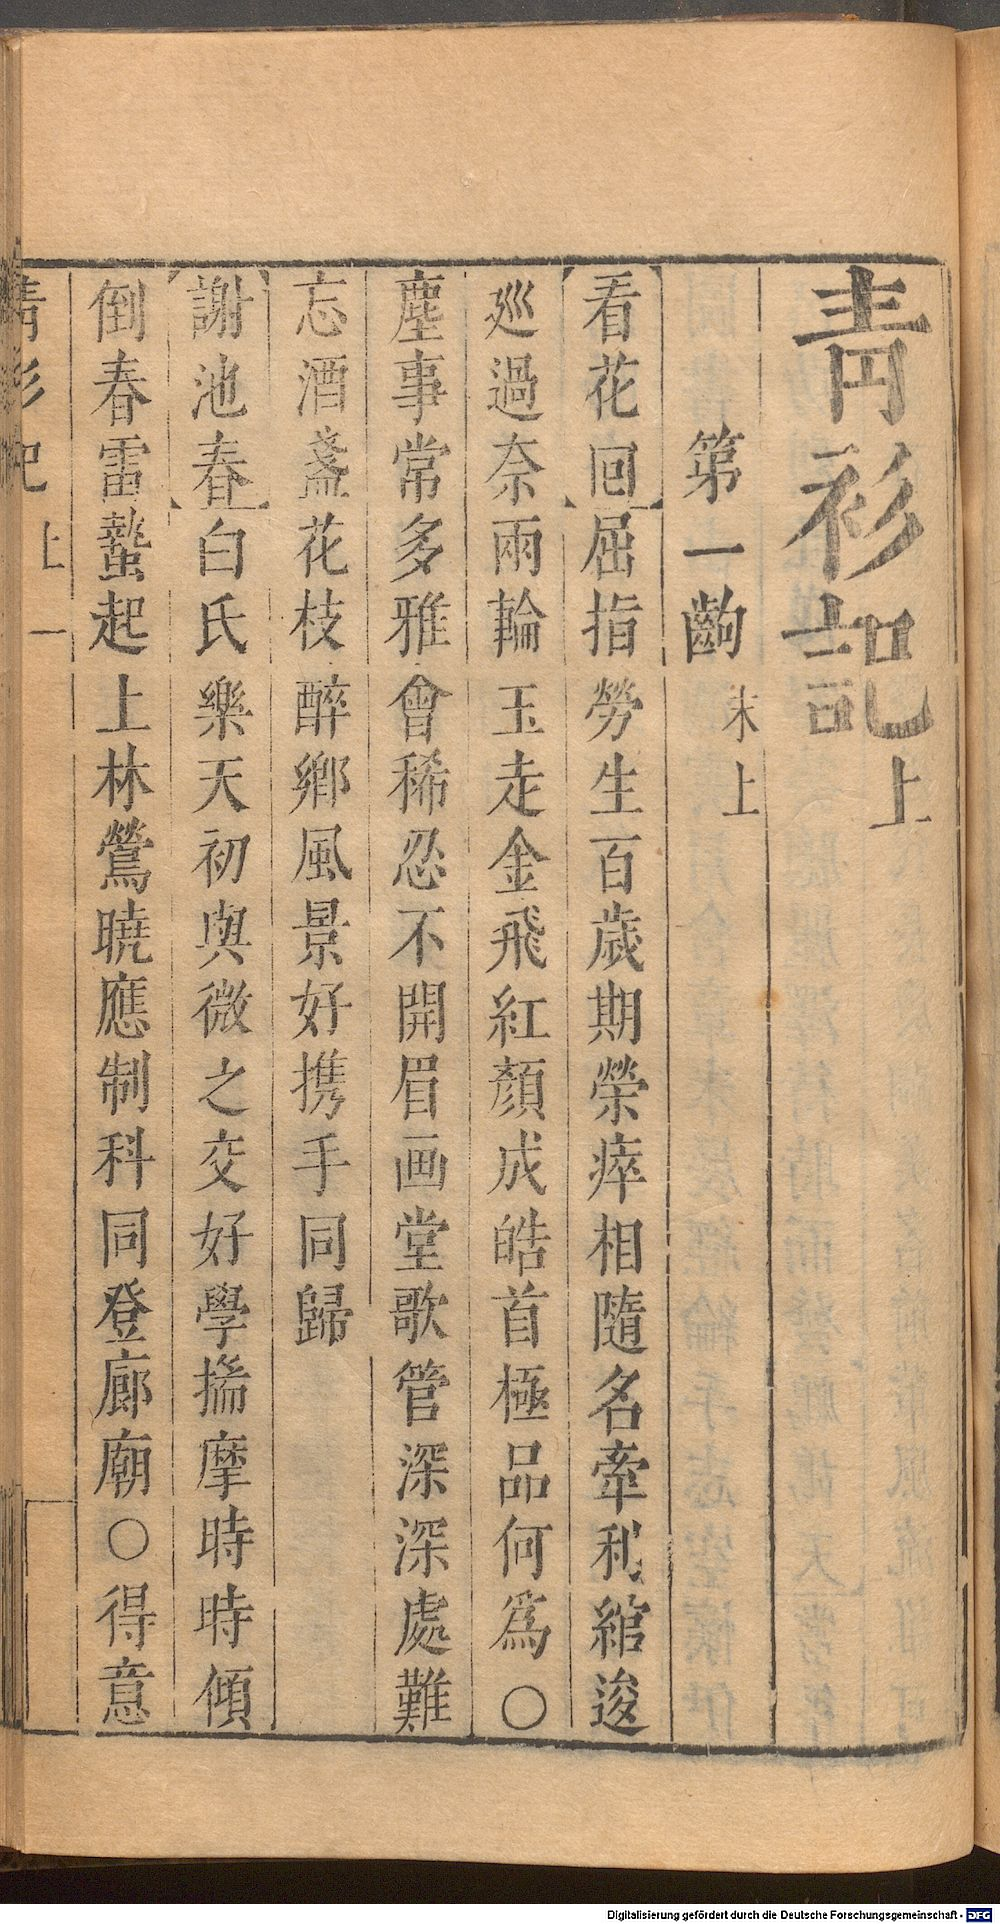 青衫記上
第一齣 末上
【看花回】屈指勞生百歲期榮瘁相隨名牽利綰逡
巡過奈兩輪玉走金飛紅顏成皓首極品何爲○
塵事常多雅會稀忍不開眉画堂歌管深深處難
忘酒盞花枝醉鄉風景好携手同歸
【謝池春】白氏樂天初與微之交好學揣摩時時傾
倒春雷蟄起上林鶯曉應制科同登廊廟○得意
青衫記 上 一
Digitalisierung gefördert durch die Deutsche Forschungsgemeinschaft - DFG